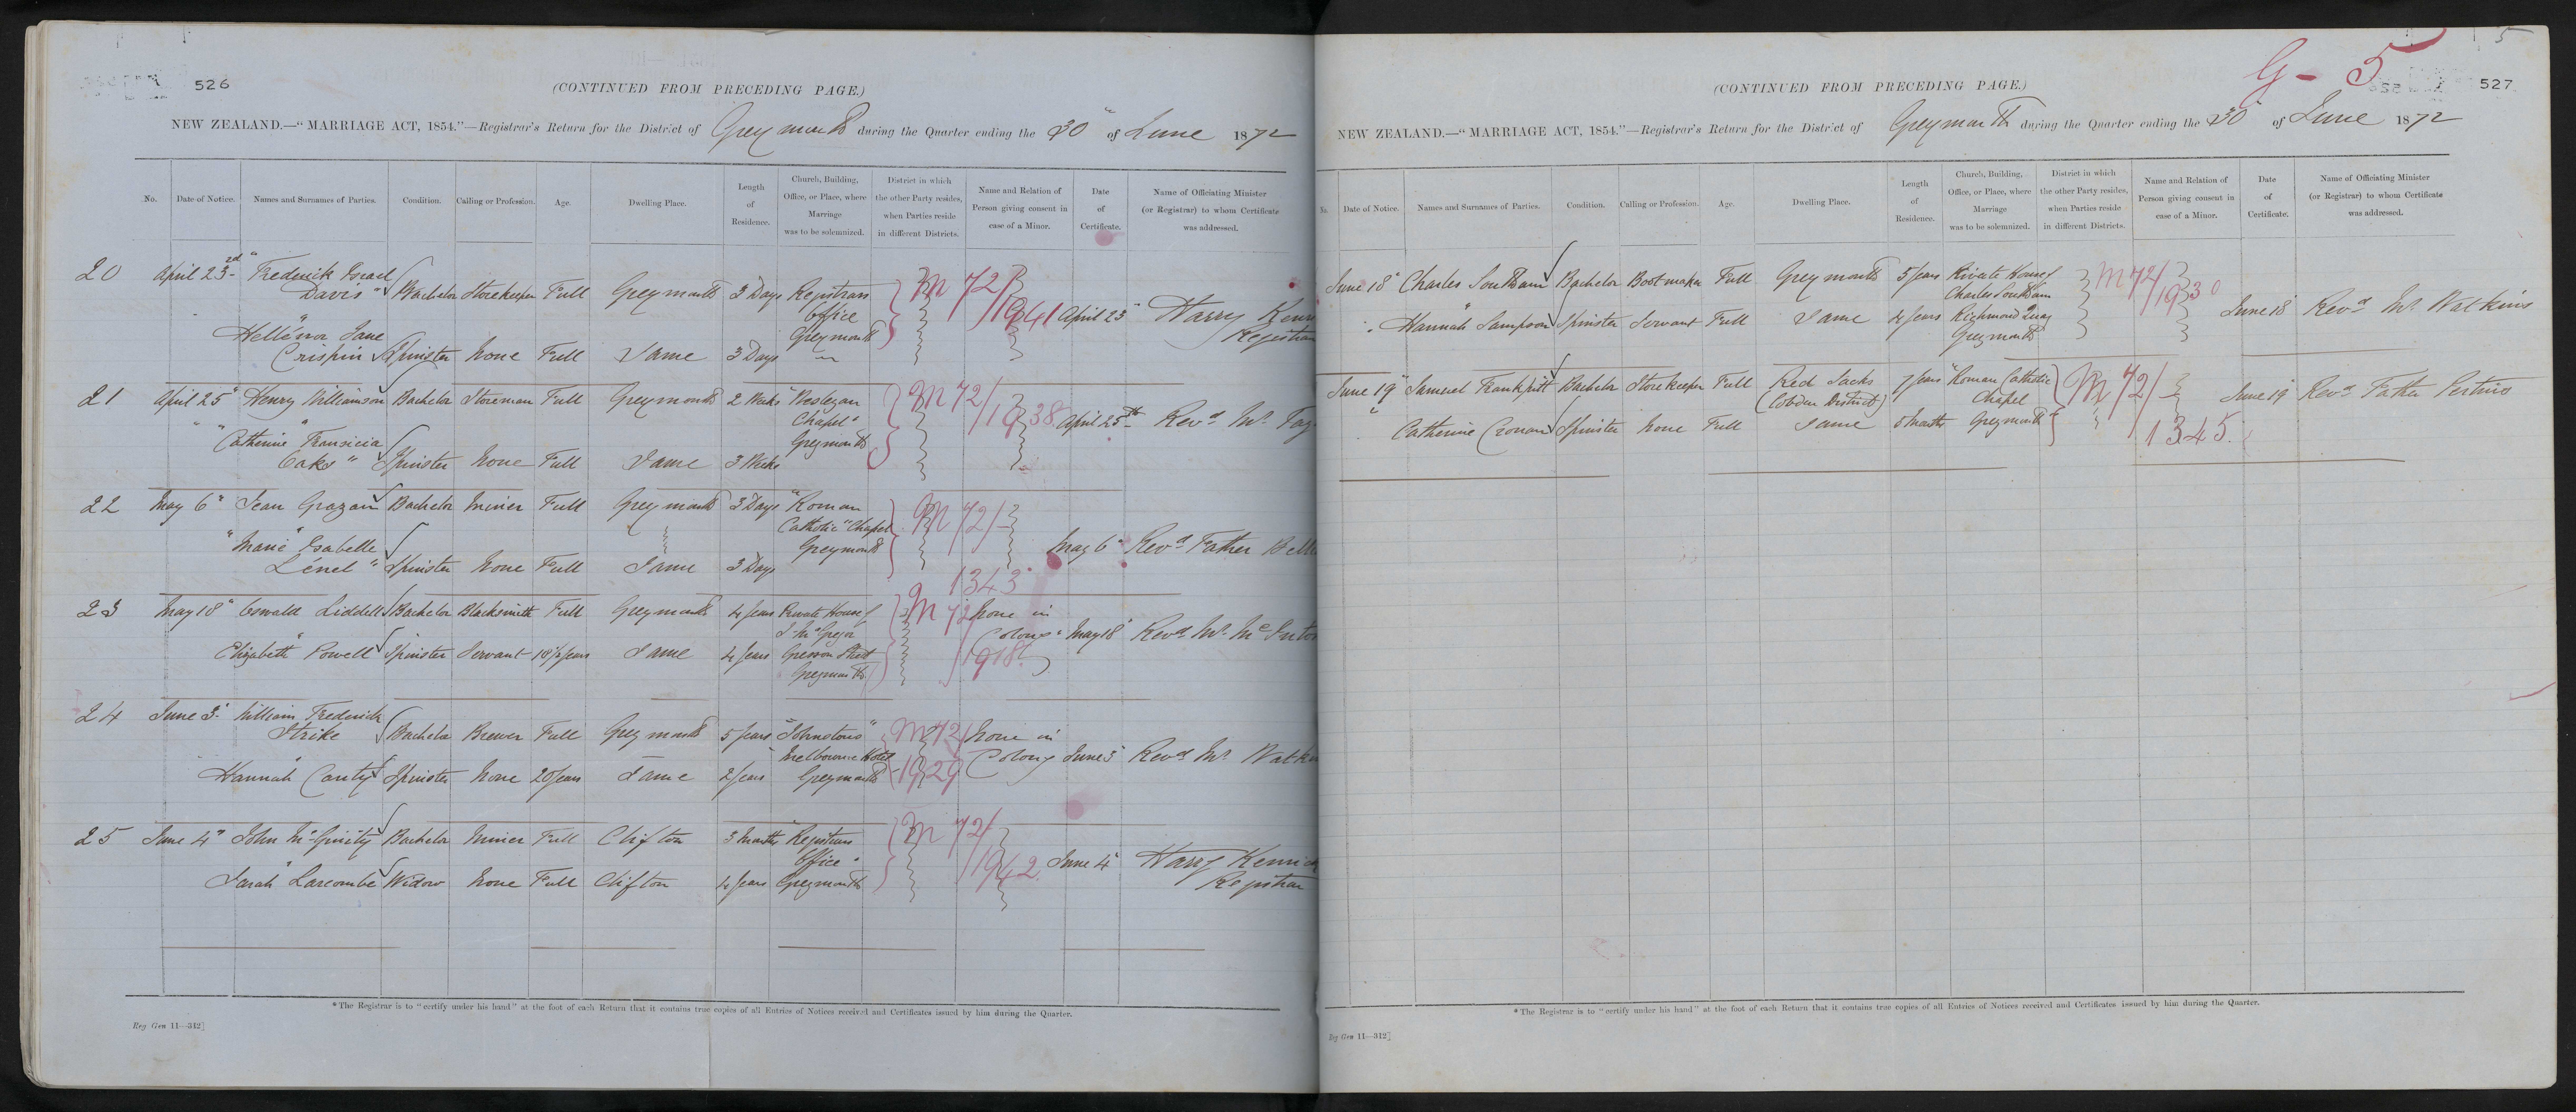 526
(CONTINUED FROM PRECEDING PAGE.)
NEW ZEALAND.—"MARRIAGE ACT, 1854."—Registrar's Return for the District of Greymouth during the Quarter ending the 30th of June 1872
No. Date of Notice. Names and Surnames of Parties. Condition. Calling or Profession. Age. Dwelling Place. Length of Residence. Church, Building, Office, or Place, where Marriage was to be solemnized. District in which the other Party resides, when Parties reside in different Districts. Name and Relation of Person giving consent in case of a Minor. Date of Certificate. Name of Officiating Minister (or Registrar) to whom Certificate was addressed.
20 April 23rd "Frederick Israel
Davis" Bachelor Storekeeper Full Greymouth 3 Days Registrars M 72/
Office 1941 April 23" Harry Kenri
Hellenor Jane Greymouth Registrar
Crispin Spinster None Full Same 3 Days
21 April 25" Henry Williamson Bachelor Storeman Full Greymouth 2 Weeks "Wesleyan M 72/
Chapel" 1938 April 25th Revd Mr.
" " "Catherine Greymouth
Oaks" Spinster None Full Same 3 Weeks
22 May 6" Jean Grazan Bachelor Miner Full Greymouth 3 Days "Roman M 72/
Catholic" Chapel
"Marie Isabelle Greymouth May 6" Revd Father
Lenel" Spinster None Full Same 3 Days
1343
23 May 18" Oswald Liddell Bachelor Blacksmith Full Greymouth 4 years Private House of M 72/ None in
J. McGregor Colony May 18" Revd Mr. McInto
Elizabeth Powell Spinster Servant 18½ years Same 4 years Gresson Street 1918
Greymouth
24 June 3" William Frederick
Strike Bachelor Brewer Full Greymouth 5 years "Johnstons" M 72/ None in
Melbourne Hotel Colony June 3" Revd Mr. Watk
Hannah Canty Spinster None 20 years Same 2 years Greymouth 1929
25 June 4" John McGinity Bachelor Miner Full Clifton 3 Months "Registrars M 72/
Office" 1942 June 4" Harry Kenrick
Sarah Larcombe Widow None Full Clifton 4 years Greymouth Registrar
*The Registrar is to "certify under his hand" at the foot of each Return that it contains true copies of all Entries of Notices received and Certificates issued by him during the Quarter.
Reg Gen 11—312]
5
G - 5
527
(CONTINUED FROM PRECEDING PAGE.)
NEW ZEALAND.—"MARRIAGE ACT, 1854."—Registrar's Return for the District of Greymouth during the Quarter ending the 30" of June 1872
No. Date of Notice. Names and Surnames of Parties. Condition. Calling or Profession. Age. Dwelling Place. Length of Residence. Church, Building, Office, or Place, where Marriage was to be solemnized. District in which the other Party resides, when Parties reside in different Districts. Name and Relation of Person giving consent in case of a Minor. Date of Certificate. Name of Officiating Minister (or Registrar) to whom Certificate was addressed.
June 18" Charles Southam Bachelor Bootmaker Full Greymouth 5 years Private House of M 72/
Charles Southam 1930 June 18" Revd Mr. Watkins
" Hannah Sampson Spinster Servant Full Same 4 years Richmond Quay
Greymouth
June 19" Samuel Frankpitt Bachelor Storekeeper Full Red Jacks 7 years "Roman Catholic M 72/ June 19" Revd Father
(Cobden District) Chapel
" Catherine Cronan Spinster None Full Same 5 Months Greymouth 1345
*The Registrar is to "certify under his hand" at the foot of each Return that it contains true copies of all Entries of Notices received and Certificates issued by him during the Quarter.
Reg Gen 11—312]